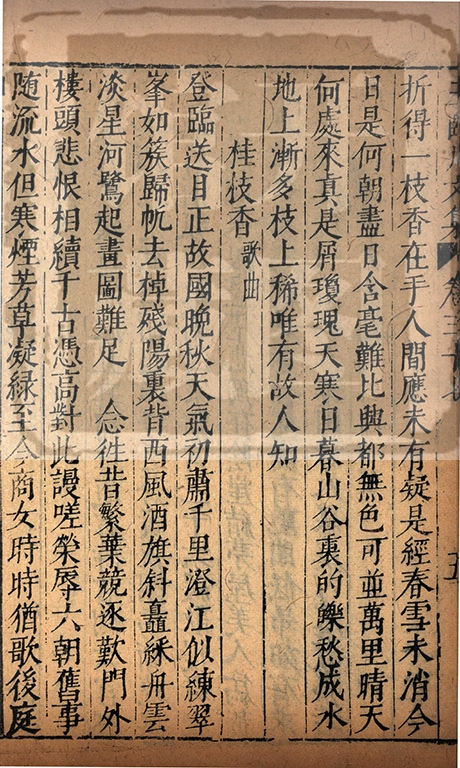 折得一枝香在手人間應未有疑是經春雪未消今
日是何朝盡日含毫難比興都無色可並萬里晴天
何處來真是屑瓊瑰天寒日暮山谷裏的皪愁成水
地上漸多枝上稀唯有故人知
桂枝香 歌曲
登臨送目正故國晚秋天氣初肅千里澄江似練翠
峯如簇歸帆去棹殘陽裏背西風酒旗斜矗綵舟雲
淡星河鷺起畫圖難足 念徃昔繁華競逐歎門外
樓頭悲恨相續千古憑高對此謾嗟榮辱六朝舊事
随流水但寒煙芳草凝緑至今商女時時猶歌後庭